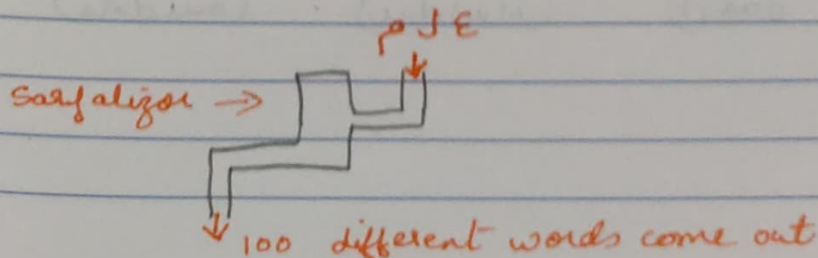 ع ل م
Sarfalizor →
100 different words come out